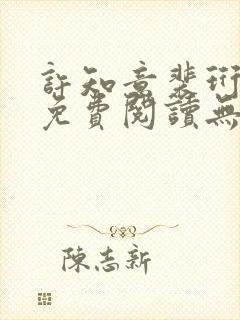 許知意裴珩
免費閱讀無
陳志新